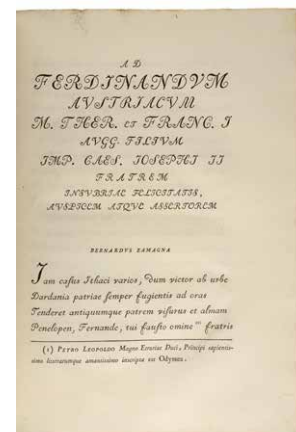 AD
FERDINANDVM
AVSTRIACVM
M. THER. ET FRANC. I
AVGG. FILIVM
IMP. CAES. IOSEPHI II
FRATREM
INSVBRIAE FELICITATIS,
AVSPICEM ATQVE ASSERTOREM
BERNARDVS ZAMAGNA
Jam casus Ithaci varios, dum victor ab urbe
Dardania patriae semper fugientis ad oras
Tenderet antiquumque patrem visurus et almam
Penelopen, Fernande, tui fausto omine (1) fratris
(1) PETRO LEOPOLDO Magno Etruriae Duci, Principi sapientis-
simo litterarumque amantissimo inscripta est Odyssea.